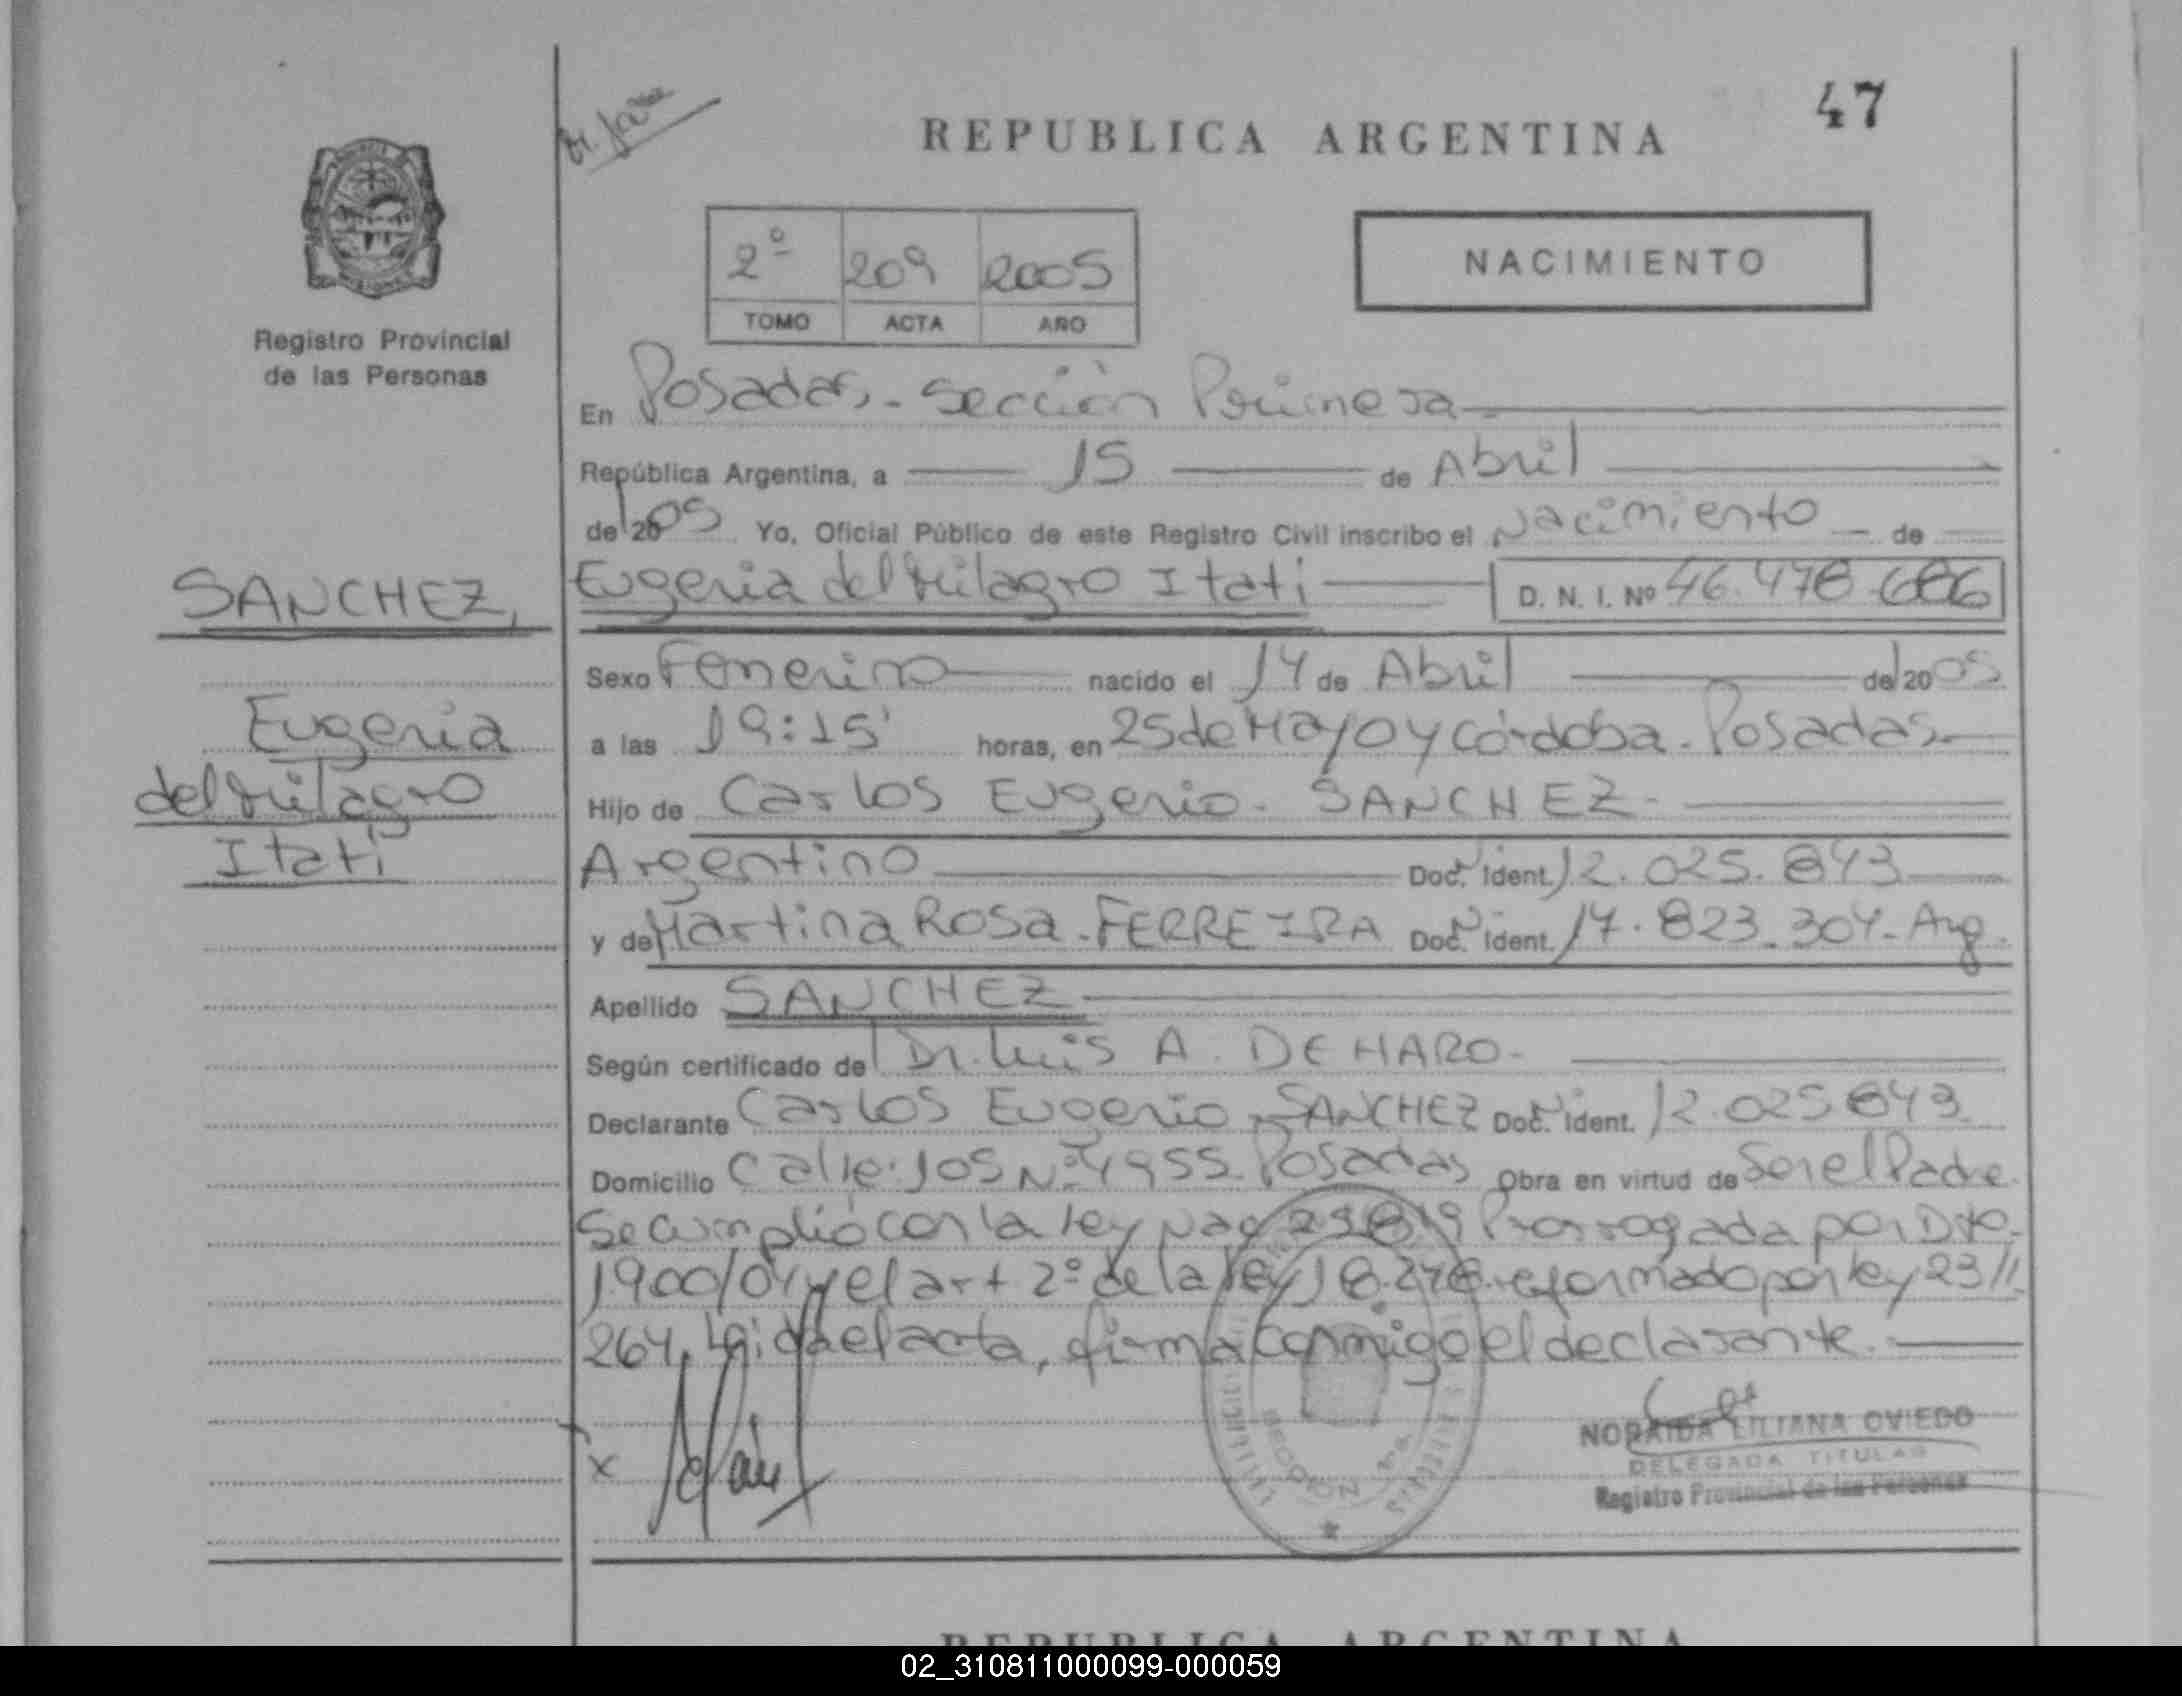 47
REPUBLICA ARGENTINA
2º 209 2005
TOMO ACTA AÑO
NACIMIENTO
Registro Provincial
de las Personas
En Posadas,- Sección Primera
República Argentina, a 15 de Abril
de 2005 Yo, Oficial Público de este Registro Civil inscribo el Nacimiento de
Eugenia del Milagro Itatí D. N. I. Nº 46.478.686
SANCHEZ,
Eugenia
del Milagro
Itatí
Sexo Femenino nacido el 14 de Abril de 2005
a las 19:15' horas, en 25 de Mayo y Córdoba. Posadas,-
Hijo de Carlos Eugenio - SANCHEZ -
Argentino Doc. ident. 12.025.843
y de Martina Rosa - FERREIRA Doc. ident. 17.823.304 - Arg.
Apellido SANCHEZ
Según certificado de Dr. Luis A. DE HARO -
Declarante Carlos Eugenio - SANCHEZ Doc. ident. 12.025.843
Domicilio Calle: 105 Nº 4955 - Posadas Obra en virtud de Ser el Padre
Se cumplió con la ley Nac 25819 Prorrogada por Dto.
1900/04 y el art 2º de la ley 18.248 reformado por ley 23//
264, Leida el acta, firma conmigo el declarante.
x
SECCION 1ra.
NORAIDA LILIANA OVIEDO
DELEGADA TITULAR
Registro Provincial de las Personas
REPUBLICA ARGENTINA
02_310811000099-000059